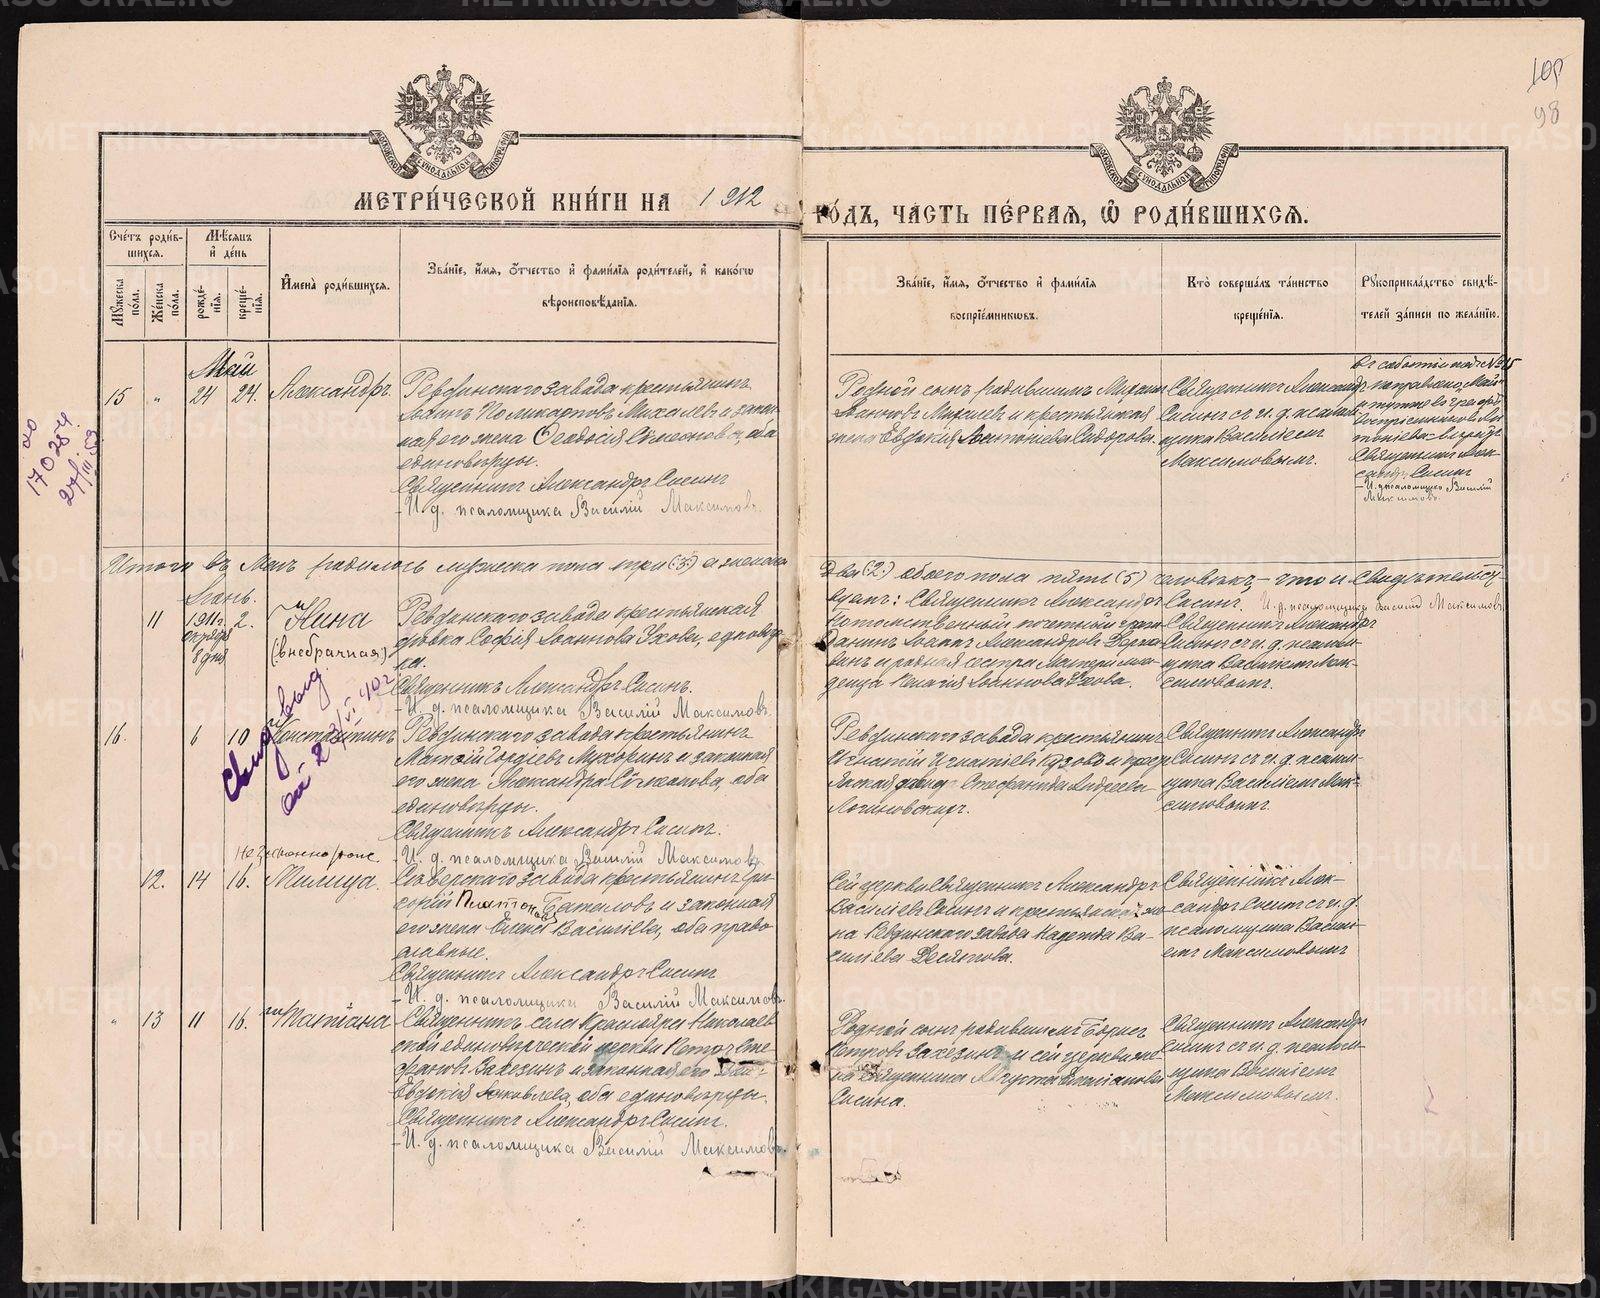 105
98
МЕТРИ́ЧЕСКОЙ КНИ́ГИ НА 1912
ГО́ДЪ, ЧА́СТЬ ПЕ́РВАЯ, Ѽ РОДИ́ВШИХСЯ.
Сче́тъ роди́в-
шихся.
Мꙋжеска по́ла.
Же́нска по́ла.
Мѣ́сяцъ
и҆ де́нь
рожде́-
нїя.
креще́-
нїя.
И҆мена̀ роди́вшихся.
Зва́нїе, и҆́мя, ѻ҆́тчество и҆ фами́лїя роди́телей, и҆ како́гѡ
вѣроисповѣ́данїя.
Зва́нїе, и҆́мя, ѻ҆́тчество и҆ фами́лїя
воспрїе́мникѡвъ.
Кто̀ соверша́лъ та́инство
креще́нїя.
Рꙋкоприкла́дство свидѣ́-
телей за́писи по жела́нїю.
Май
15
"
24
24.
Александръ.
Ревдинскаго завода крестьянинъ
Іоаннъ Поликарповъ Михалевъ и закон-
ная его жена Ѳеодосія Сѵмеонова, оба
единовѣрцы.
Священникъ Александръ Сисинъ
- И. д. псаломщика Василій Максимовъ.
Родной сынъ родившимъ
Іоанновъ Михалевъ и крестьянская
жена Евдокія Сидорова.
Священникъ Александръ
Сисинъ съ и. д. псалом-
щика Василіемъ
Максимовымъ.
Священникъ Алек-
сандръ Сисинъ
- И. д. псаломщика Василій
Максимовъ.
Итого въ Маѣ родилось мужеска пола три (3) а женска
два (2) обоего пола пять (5) человѣкъ, - что и свидѣтельст-
вуемъ: Священникъ Александръ Сисинъ. И. д. псаломщика Василій Максимовъ.
Іюнь.
11
1911 г.
октября
8 дня
2.
Нина
(внебрачная)
Ревдинскаго завода крестьянская
дѣвка Софія Іоаннова Ухова, единовѣр-
ка.
Священникъ Александръ Сисинъ.
- И. д. псаломщика Василій Максимовъ.
Потомственный почетный граж-
данинъ Іоаннъ Александровъ
и родная сестра матери мла-
денца Іоаннова Ухова.
Священникъ Александръ
Сисинъ съ и. д. псалом-
щика Василіемъ Мак-
симовымъ.
16.
6
10
Константинъ
Ревдинскаго завода крестьянинъ
Матѳій Гордіевъ Мухоринъ и законная
его жена Александра Сѵмеонова, оба
единовѣрцы.
Священникъ Александръ Сисинъ.
- И. д. псаломщика Василій Максимовъ.
Ревдинскаго завода крестьянинъ
Игнатій Игнатіевъ и крес-
Стефанида Андреева
Логиновскихъ.
Священникъ Александръ
Сисинъ съ и. д. псалом-
щика Василіемъ Мак-
симовымъ.
12.
14
16.
Милица.
Сѣверскаго завода крестьянинъ Гри-
горій Платоновъ Баталовъ и законная
его жена Елена Васильева, оба право-
славные.
Священникъ Александръ Сисинъ
- И. д. псаломщика Василій Максимовъ.
Сей церкви Священникъ Александръ
Василіевъ Сисинъ и крестьянская же-
на Ревдинскаго завода Надежда Ва-
силіева Десятова.
Священникъ Алек-
сандръ Сисинъ съ и. д.
псаломщика Васили-
емъ Максимовымъ
"
13
11
16.
Татіана
Священникъ села Краснояра Николаев-
ской единовѣрческой церкви Петръ Сте-
фановъ Захезинъ и законная его жена
Евдокія Іаковлева, оба единовѣрцы.
Священникъ Александръ Сисинъ.
- И. д. псаломщика Василій Максимовъ.
Родной сынъ родившимъ Борисъ
Петровъ Захезинъ и сей церкви же-
на священника Августа
Сисина.
Священникъ Александръ
Сисинъ съ и. д. псалом-
щика Василіемъ
Максимовымъ.
METRIKI.GASO-URAL.RU